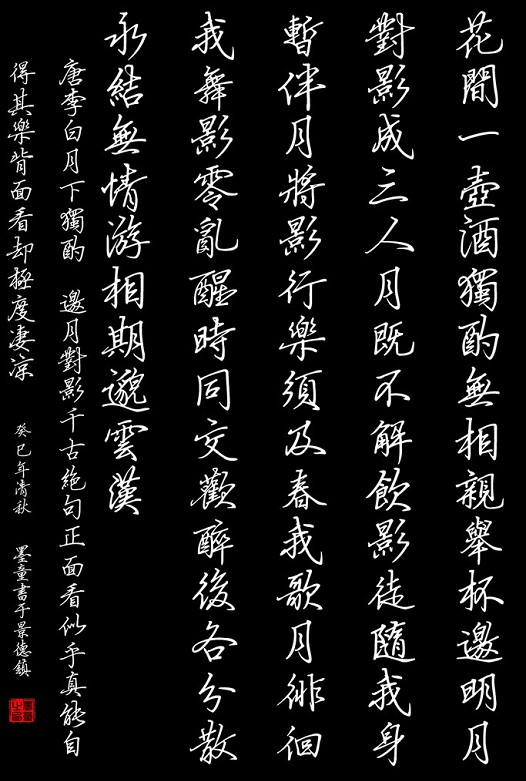 花間一壺酒獨酌無相親舉杯邀明月
對影成三人月既不解飲影徒隨我身
暫伴月將影行樂須及春我歌月徘徊
我舞影零亂醒時同交歡醉後各分散
永結無情游相期邈雲漢
唐李白月下獨酌 邀月對影千古絕句正面看似乎真能自
得其樂背面看却極度凄涼
癸巳年清秋 墨童書于景德鎮